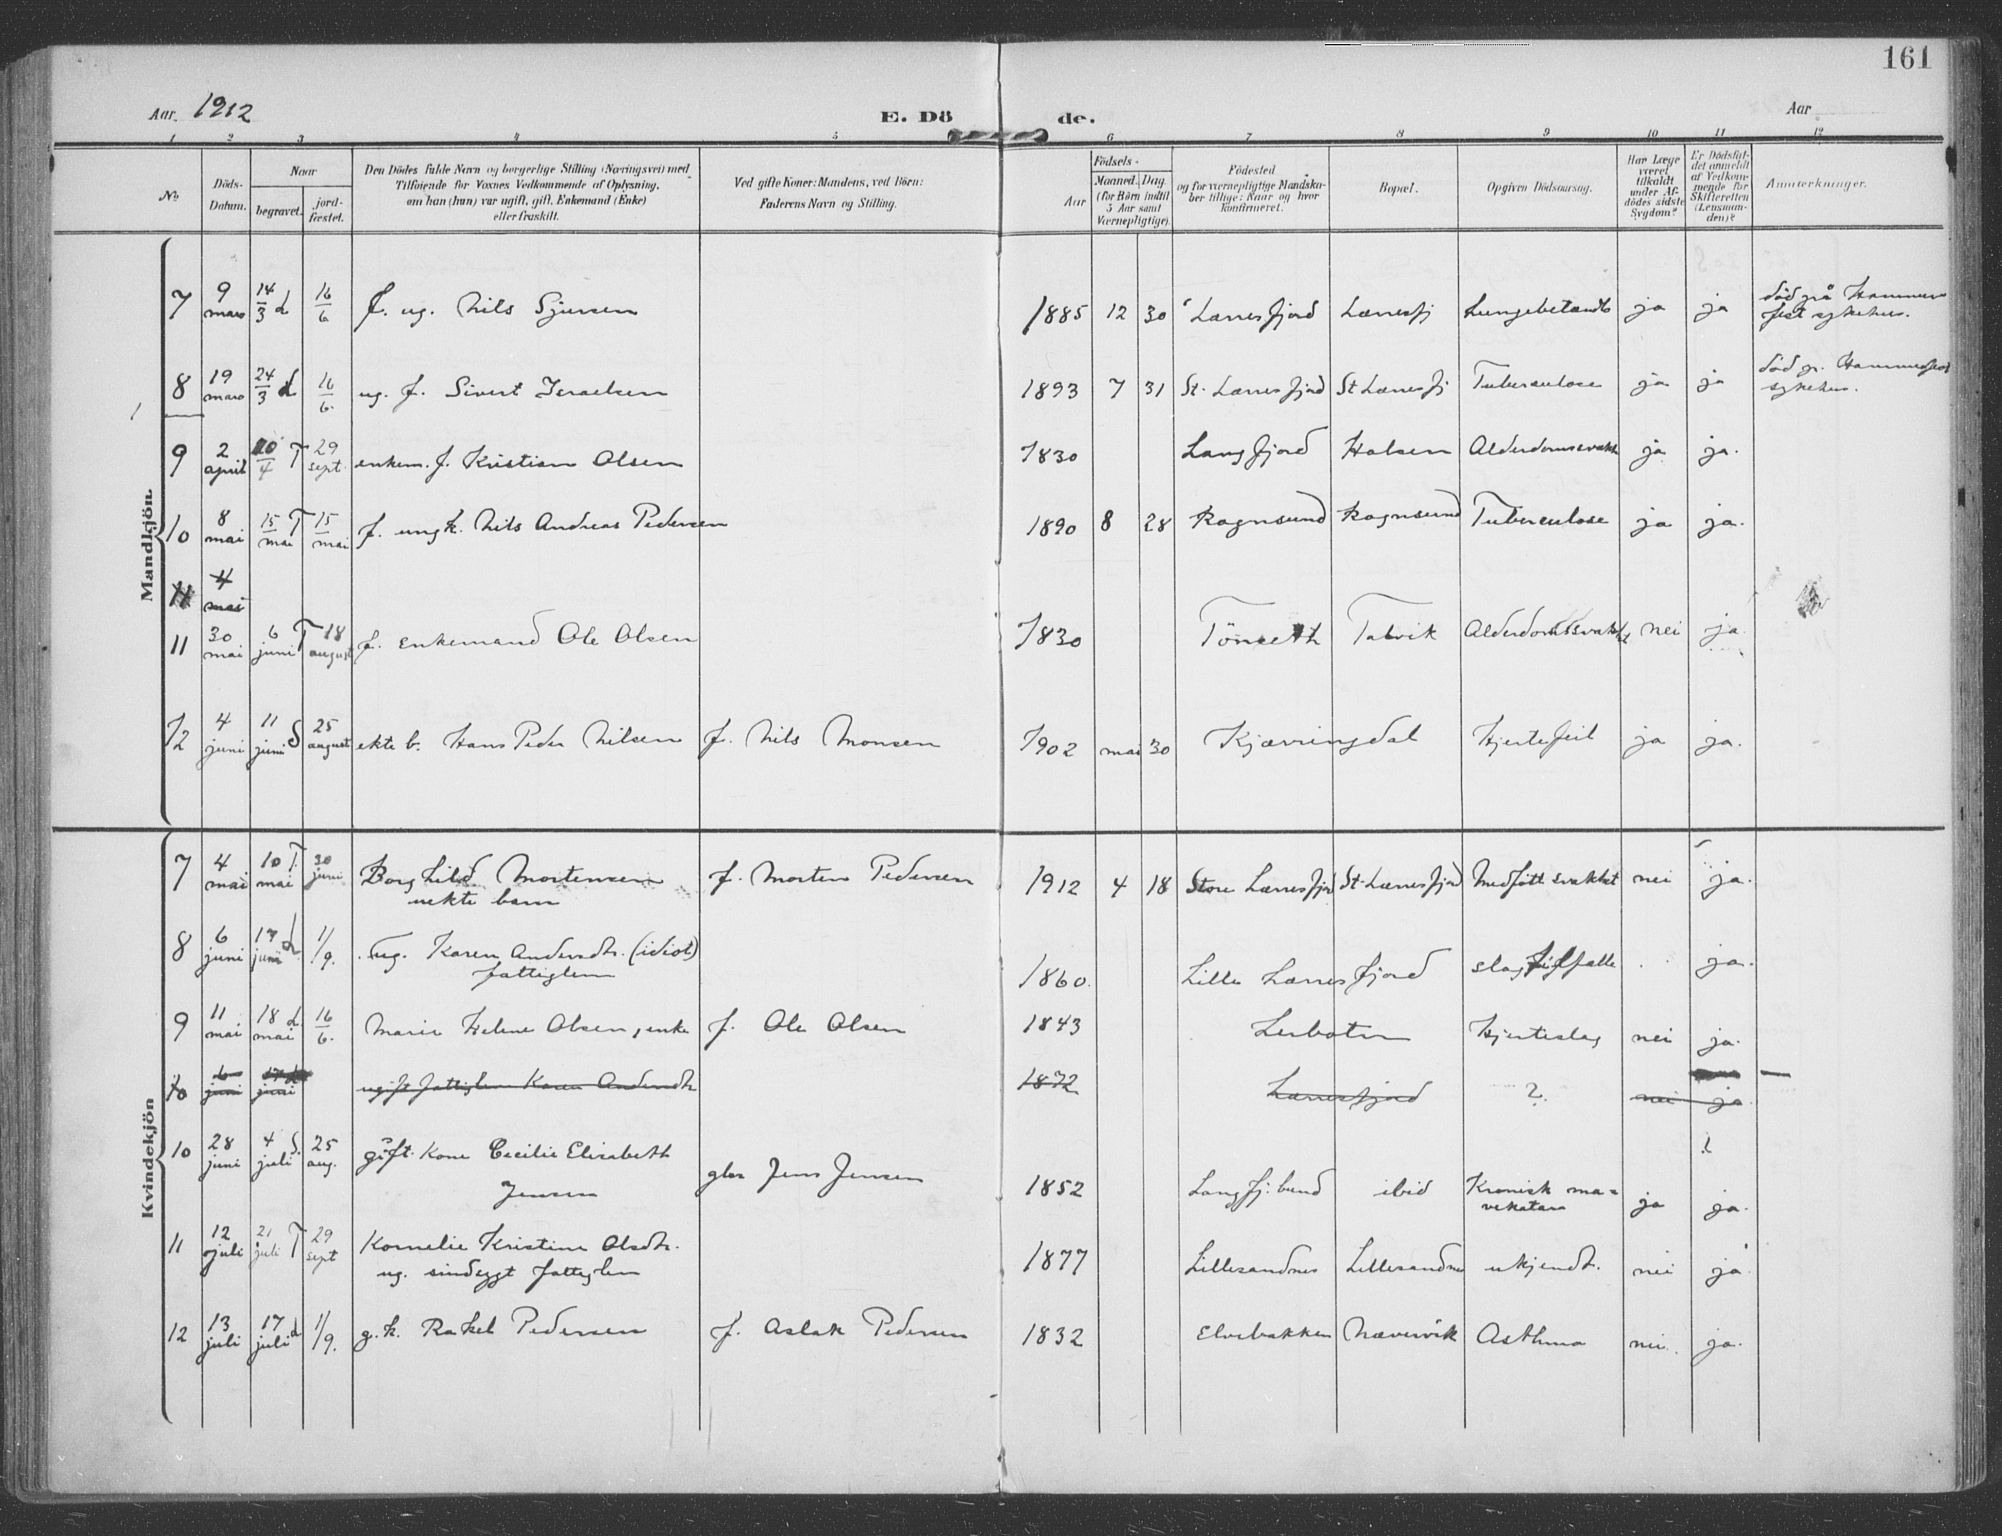 161
Aar. 1912
E. Dö
de.
Aar
1 2 3 4 5 6 7 8 9 10 11 12
No.
Döds-
Datum.
Naar
begravet.
jord-
fæstet.
Den Dödes fulde Navn og borgerlige Stilling (Næringsvei) med
Tilføiende for Voxnes Vedkommende af Oplysning,
om han (hun) var ugift, gift, Enkemand (Enke)
eller fraskilt.
Ved gifte Koner: Mandens, ved Börn:
Faderens Navn og Stilling.
Födsels-
Aar
Maaned. Dag.
(for Börn indtil
5 Aar samt
Værnepligtige).
Födested
og for værnepligtige Mandska-
ber tillige: Naar og hvor
konfirmeret.
Bopæl.
Opgiven Dödsaarsag.
Har Læge
været
tilkaldt
under Af-
dödes sidste
Sygdom?
Er Dödsfal-
det anmeldt
af Vedkom-
mende for
Skifteretten
(Lensman-
den)?
Anmærkninger.
Mandkjön.
7 9 mars 14/3 d 16/6 f. ug. Nils Sjursen 1885 12 30 Lærresfjord Lærresfj Lungebetændls ja ja död på Hammer
fest sykehus.
8 19 mars 24/3 d 16/6. ug. f. Sivert Israelsen 1893 7 31 St. Lærresfjord St Lærresfj Tuberculose ja ja död p. Hammerfest
sykehus.
9 2 april 10/4 T 29 sept. enkem. f. Kristian Olsen 1830 Langfjord Halsen Alderdomssvakh ja ja.
10 8 mai 15 mai T 15 mai f. ungk. Nils Andreas Pedersen 1890 8 28 Rognsund Rognsund Tuberculose ja ja.
11 4 mai
11 30 mai 6 juni T 18 august f. enkemand Ole Olsen 1830 Tönseth Talvik Alderdomssvakht nei ja
12 4 juni 11 juni S 25 august ekte b. Hans Peder Nilsen f. Nils Monsen 1902 mai 30 Kjærringdal Hjertefeil ja ja.
Kvindekjön
7 4 mai 10 mai T. 30 juni Borghild Mortensen f. Morten Pedersen 1912 4 18 Store Lærresfjord St. Lærresfjord Medfött svakhet nei ja.
uekte barn
8 6 juni 17 juni d 1/9. ug. Karen Andersdtr. (idiot) 1860. Lille Lærresfjord slagtilfælle ja.
fattiglem
9 11 mai 18 mai d. 16/6. Marie Helene Olsen, enke f. Ole Olsen 1843 Lerbotn Hjerteslag nei ja.
10 6 juni 17 juni d ugift fattiglem Karen Andersdtr 1872 Lærresfjord ?. nei ja.
10 28 juni 4 juli S. 25 aug. gift Kone Cecilie Elisabeth
Jensen gbr Jens Jensen 1852 Langfj. bund ibid Kronisk ma=
vekatarr ja ja.
11 12 juli 21 juli T 29 sept Kornelie Kristine Olsdtr. 1877 Lillesandnes Lillesandnes ukjendt. nei ja
ug. sindsygt fattiglem
12 13 juli 17 juli d 1/9. g. k. Rakel Pedersen f. Aslak Pedersen 1832 Elvebakken Næververvik Asthma nei. ja.